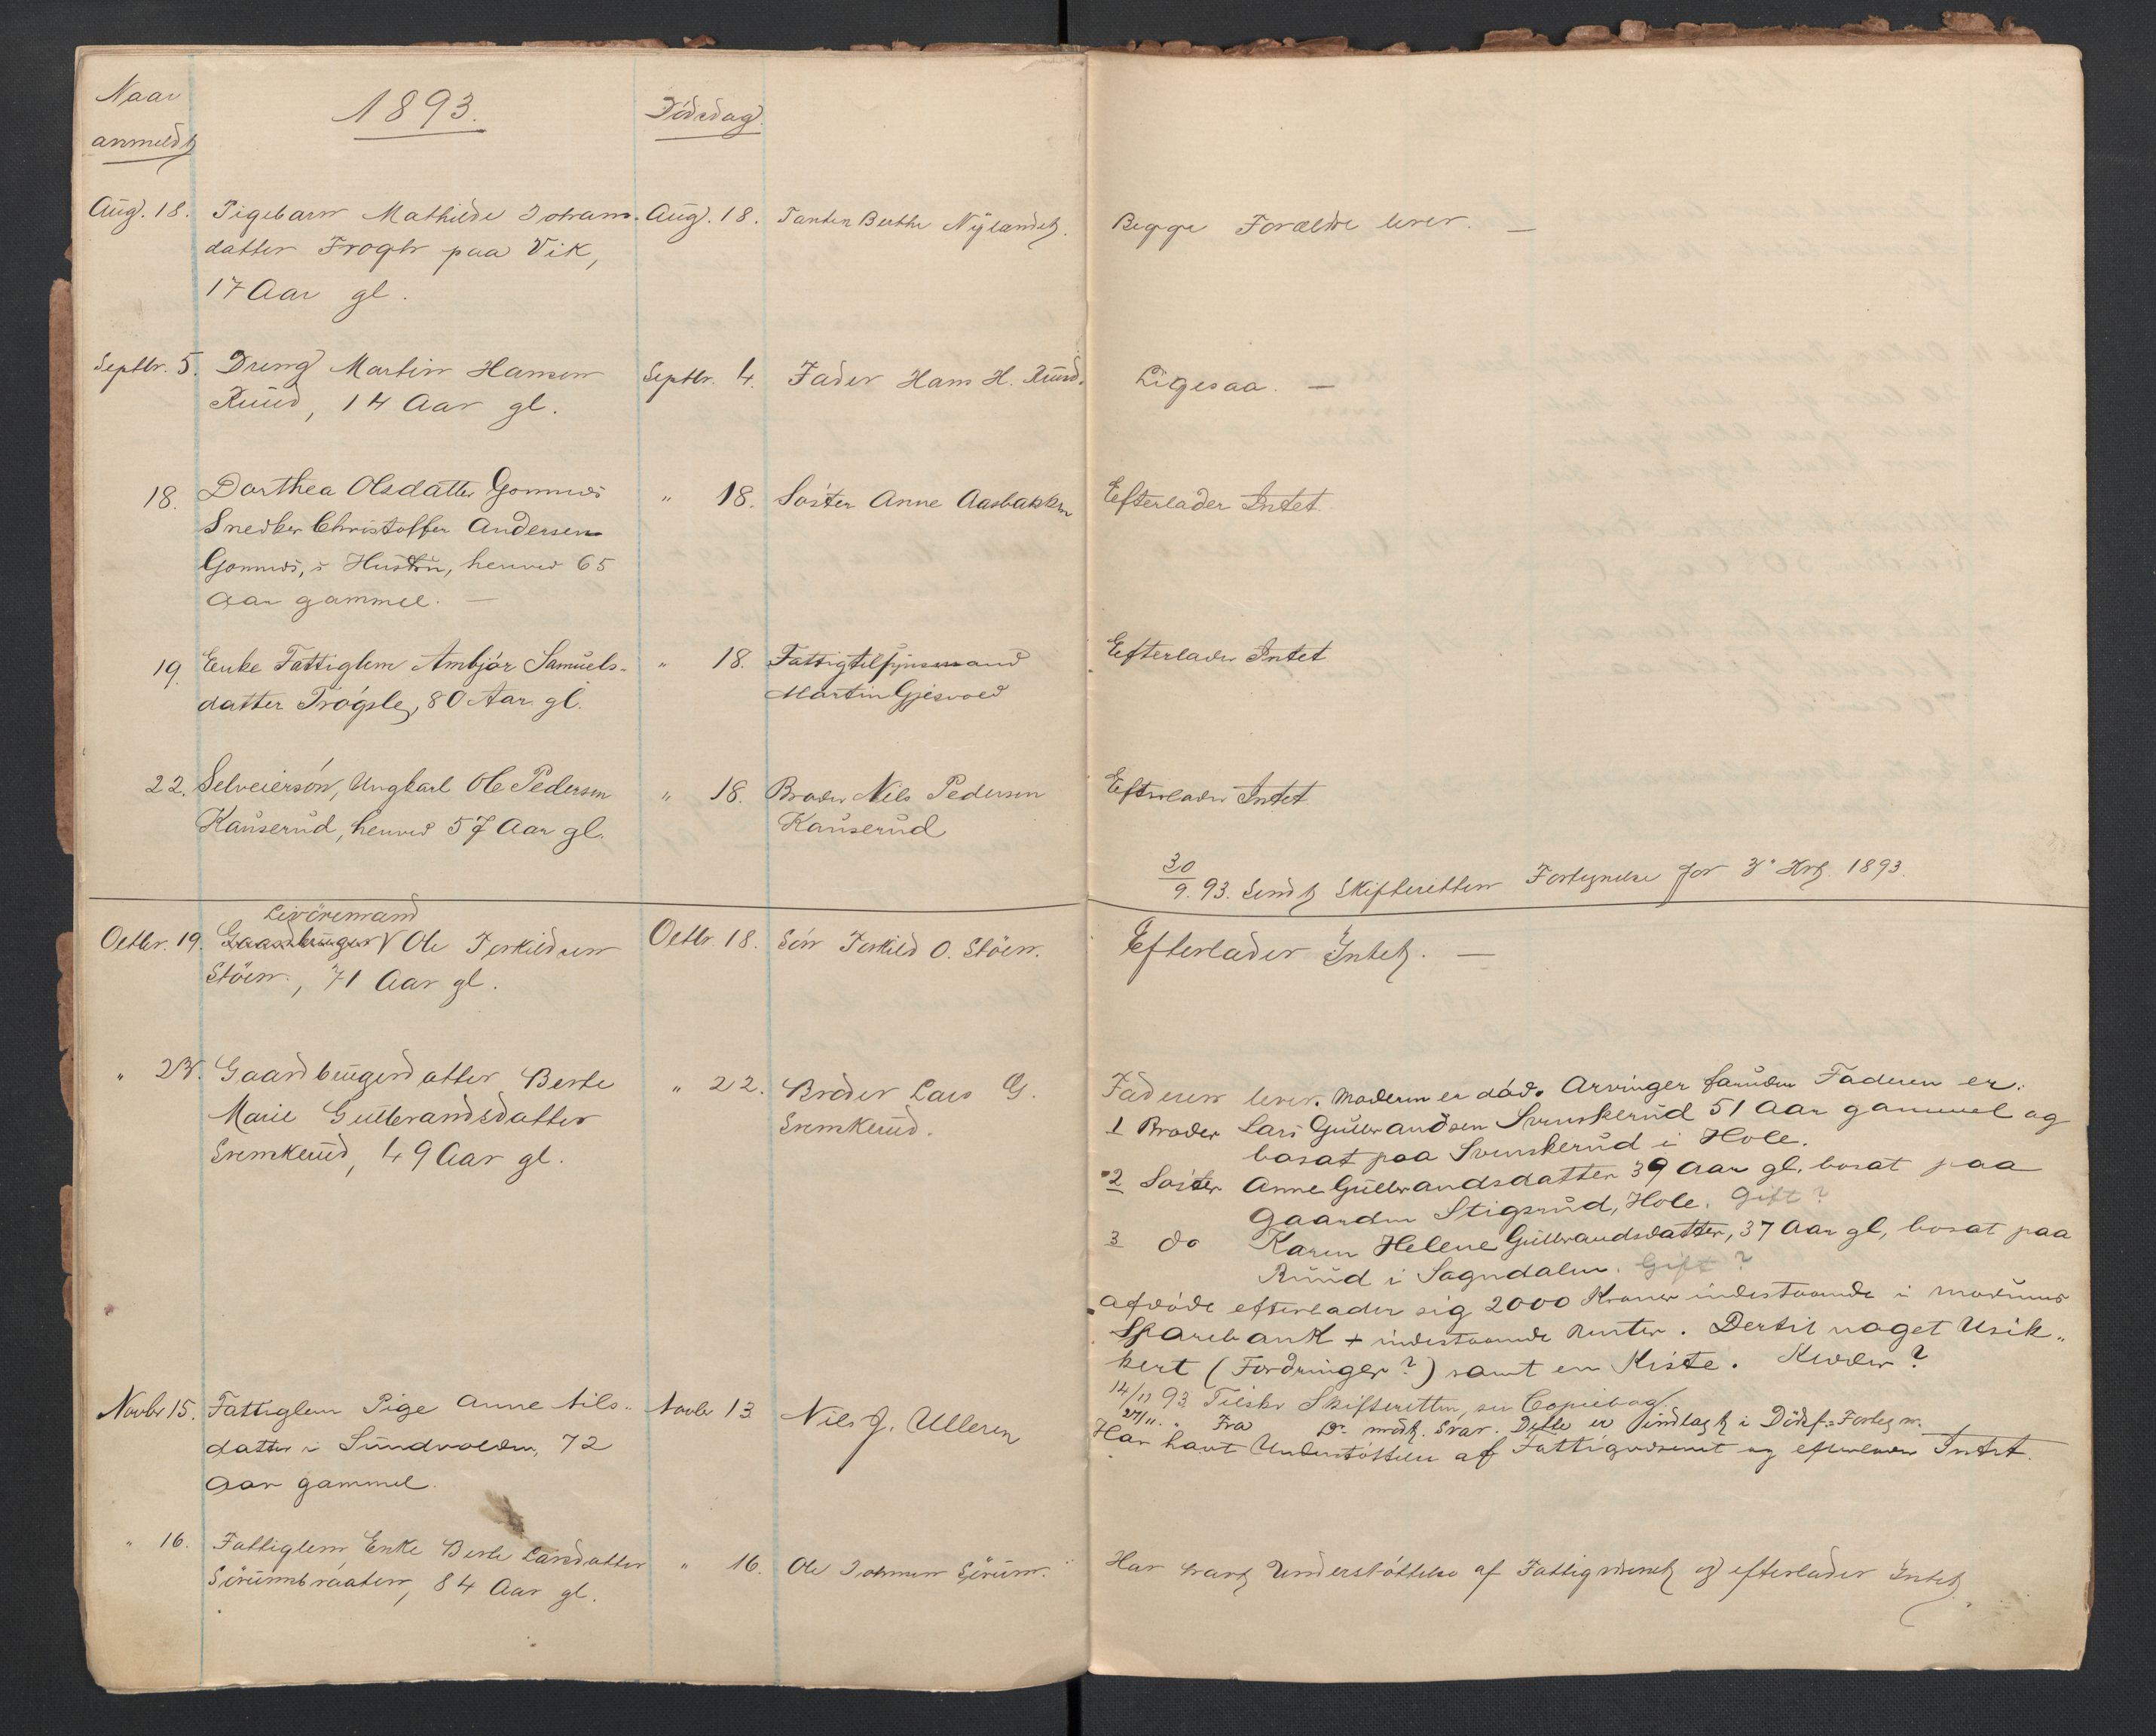 Naar
anmeldt
1893.
Dödsdag.
Aug. 18. Pigebarn Mathilde Johans- Aug. 18. Tanten Berthe Nÿlandet. Begge Forældre lever. —
datter Frogh paa Vik,
17 Aar gl.
Septbr. 5. Dreng Martin Hansen Septbr. 4. Fader Hans H. Ruud. Ligesaa. —
Ruud, 14 Aar gl.
18. Dorthea Olsdatter Gomnæs " 18. Söster Anne Aasbakken Efterlader Intet.
Snedker Christoffer Andersen
Gomnæs, s Hustru, henved 65
Aar gammel. —
19. Enke Fattiglem Ambjör Samuels- " 18. Fattigtilsynsmand Efterlader Intet
datter Trögsle, 80 Aar gl. Martin Gjesvold
22. Selveiersön, Ungkarl Ole Pedersen " 18. Broder Nils Pedersen Efterlader Intet.
Kauserud, henved 57 Aar gl. Kauserud
30/9. 93. Sendt Skifteretten Fortegnelse for 3' Krt. 1893.
Livöremand
Octbr. 19. Gaardbruger V Ole Torkildsen Octbr. 18. Sön Torkild O. Stöen. Efterlader Intet. —
Stöen., 71 Aar gl.
" 23. Gaardbrugerdatter Berte " 22. Broder Lars G.
Marie Gulbrandsdatter Svenskerud.
Svenskerud, 49 Aar gl.
Faderen lever. Moderen er död. Arvinger foruden Faderen er:
1 Broder Lars Gulbrandsen Svenskerud 51 Aar gammel og
bosat paa Svenskerud i Hole.
2 Söster Anne Gulbrandsdatter 39 Aar gl. bosat paa
Gaarden Stigsrud, Hole. Gift?
3 do Karen Helene Gulbrandsdatter, 37 Aar gl, bosat paa
Ruud i Sognedalen. Gift?
Afdöde efterlader sig 2000 Kroner indestaaende i Modums
Sparebank + indestaaende Renter. Dertil noget Usik-
kert (Fordringer?) samt en Kiste. Klæder?
14/11 93 Tilskr Skifteretten, se Copiebog.
27/11. " Fra Do. modt. Svar. Dette er indlagt i Dödsf.-Fortegn.
Novbr 15. Fattiglem Pige Anne Nils- Novbr 13 Nils J. Ulleren Har havt Understöttelse af Fattigvæsenet og efterlader Intet.
datter i Sundvolden, 72
Aar gammel.
" 16. Fattiglem Enke Berte Larsdatter " 16. Ole Johnsen Sörum. Har havt Understöttelse af Fattigvæsenet og efterlader Intet.
Sörumbraaten, 84 Aar gl.